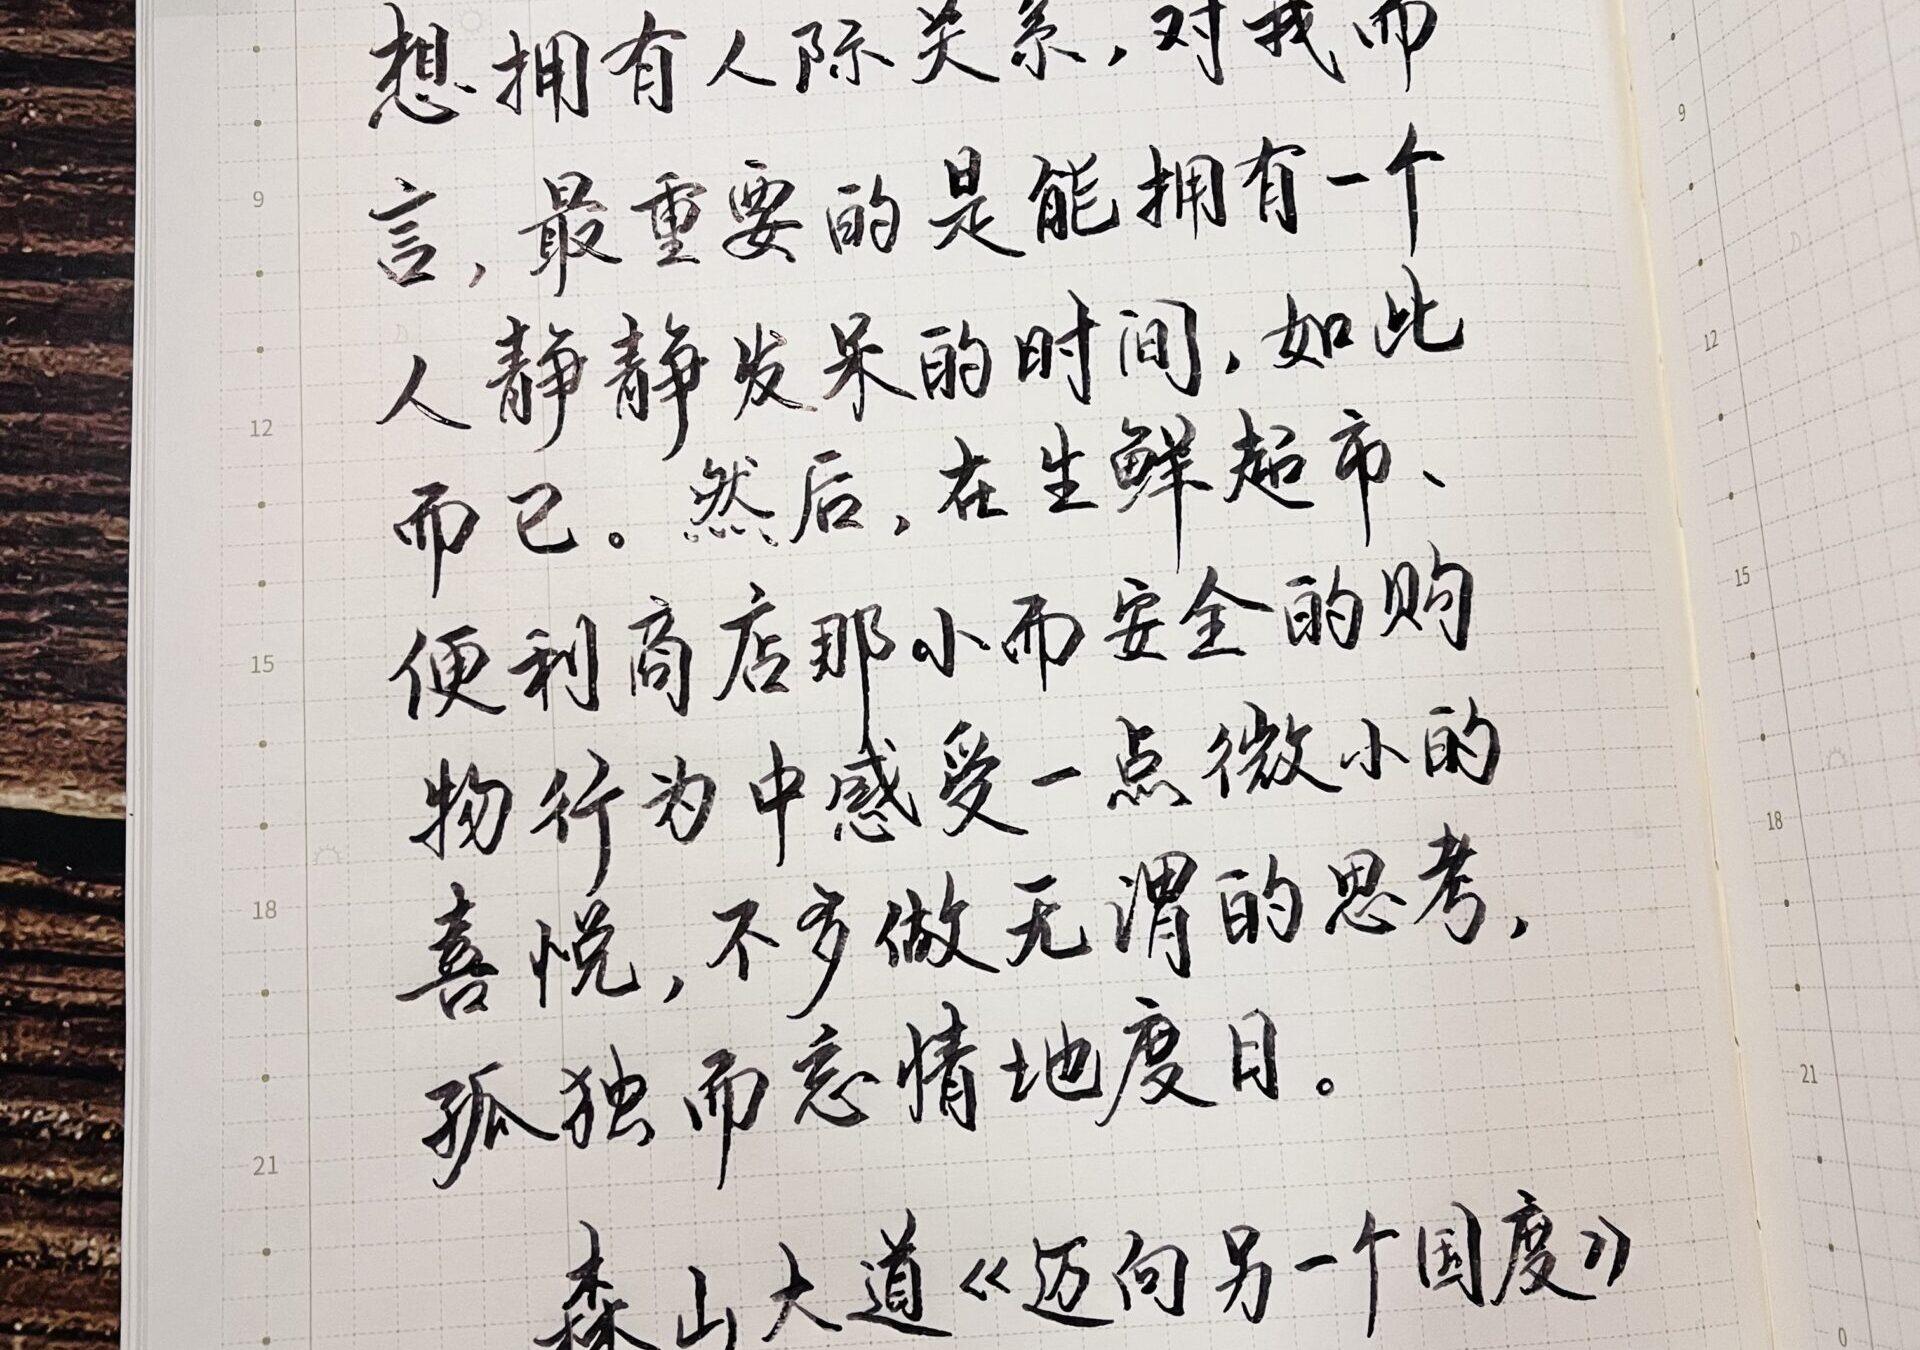 想拥有人际关系，对我而
言，最重要的是能拥有一个
人静静发呆的时间，如此
而已。然后，在生鲜超市、
便利商店那小而安全的购
物行为中感受一点微小的
喜悦，不多做无谓的思考，
孤独而忘情地度日。
森山大道《迈向另一个国度》
9
12
15
18
21
9
12
15
18
21
0